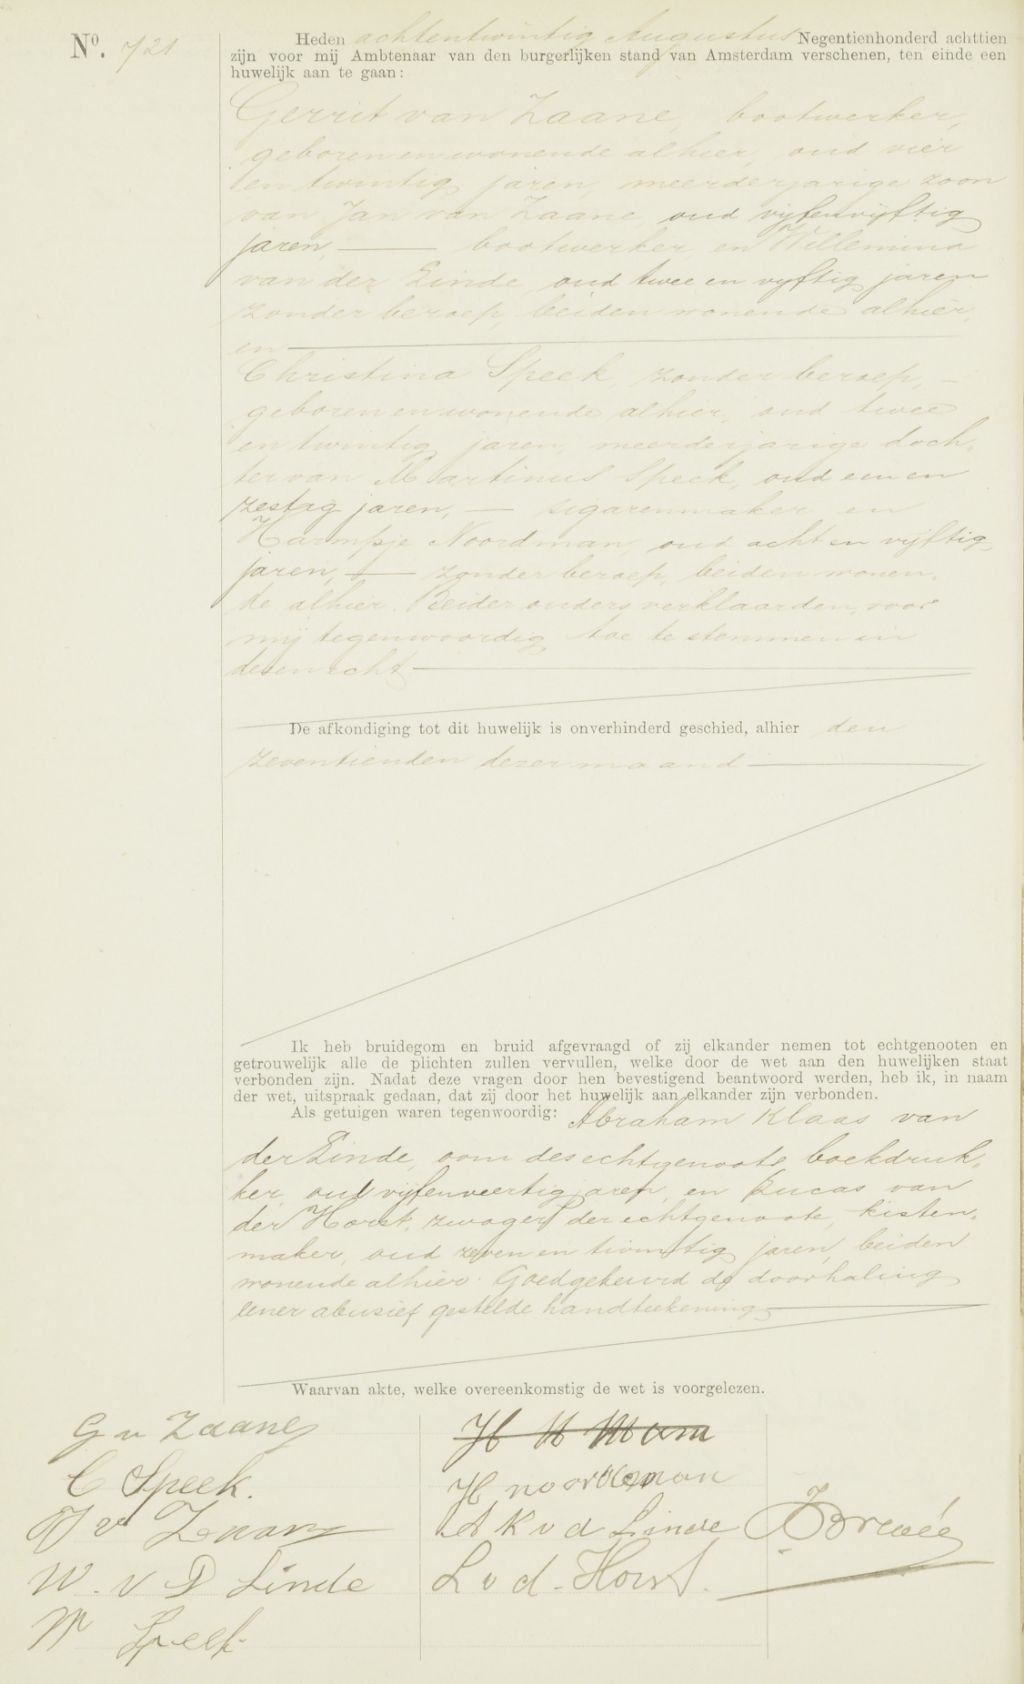 Nº. 721
Heden achtentwintig Augustus Negentienhonderd achttien
zijn voor mij Ambtenaar van den burgerlijken stand van Amsterdam verschenen, ten einde een
huwelijk aan te gaan:
Gerrit van Zaane, bootwerker,
geboren en wonende alhier, oud vier
en twintig jaren, meerderjarige zoon
van Jan van Zaane, oud vijfenvijftig
jaren, bootwerker, en Willemina
van der Linde, oud twee en vijftig jaren
zonder beroep, beiden wonende alhier,
en
Christina Speek, zonder beroep,
geboren en wonende alhier, oud twee
en twintig jaren, meerderjarige doch-
ter van Martinus Speek, oud een en
zestig jaren, sigarenmaker en
Harmpje Noordman, oud acht en vijftig
jaren, zonder beroep, beiden wonen-
de alhier. Beider ouders verklaarden, voor
mij tegenwoordig toe te stemmen in
dezen echt
De afkondiging tot dit huwelijk is onverhinderd geschied, alhier den
zeventienden dezer maand
Ik heb bruidegom en bruid afgevraagd of zij elkander nemen tot echtgenooten en
getrouwelijk alle de plichten zullen vervullen, welke door de wet aan den huwelijken staat
verbonden zijn. Nadat deze vragen door hen bevestigend beantwoord werden, heb ik, in naam
der wet, uitspraak gedaan, dat zij door het huwelijk aan elkander zijn verbonden.
Als getuigen waren tegenwoordig: Abraham Klaas van
der Linde, oom des echtgenoots, boekdruk-
ker, oud vijfenveertig jaren, en Lucas van
der Horst, zwager der echtgenoote, kisten-
maker, oud zeven en twintig jaren, beiden
wonende alhier. Goedgekeurd de doorhaling
eener abusief gestelde handteekening
Waarvan akte, welke overeenkomstig de wet is voorgelezen.
G v Zaane
C Speek.
J v Zaane
W. v D Linde
M Speek
H N
H noordman
A K v d Linde
L v d. Horst.